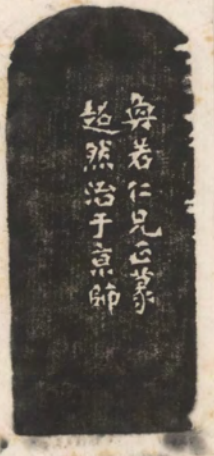 舜若仁兄正篆
超然治于京師